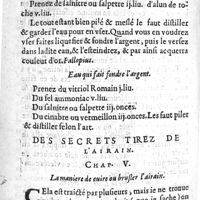 Prenez de salnitre ou salpetre ij.liu. d'alun de roche v.liu.
Le tout estant bien pilé & meslé le faut distiller
& garder l'eau pour en vser. Quand vous en voudrez
vser faites liquefier & fondre l'argent, puis le versez
dans ladite eau, & l'esteindrez, & par ainsi acquerra
couleur d'or. Fallopius.
Eau qui fait fondre l'argent.
Prenez du vitriol Romain j.liu.
Du sel ammoniac v.liu.
Du salnitre ou salpetre iij.onces.
Du cinabre ou vermeillon iij.onces. Les faut piler
& distiller selon l'art.
DES SECRETS TIREZ DE
L'AIRAIN.
CHAP. V.
La maniere de cuire ou brusler l'airain.
Cela est traicté par plusieurs, mais ie ne trouue